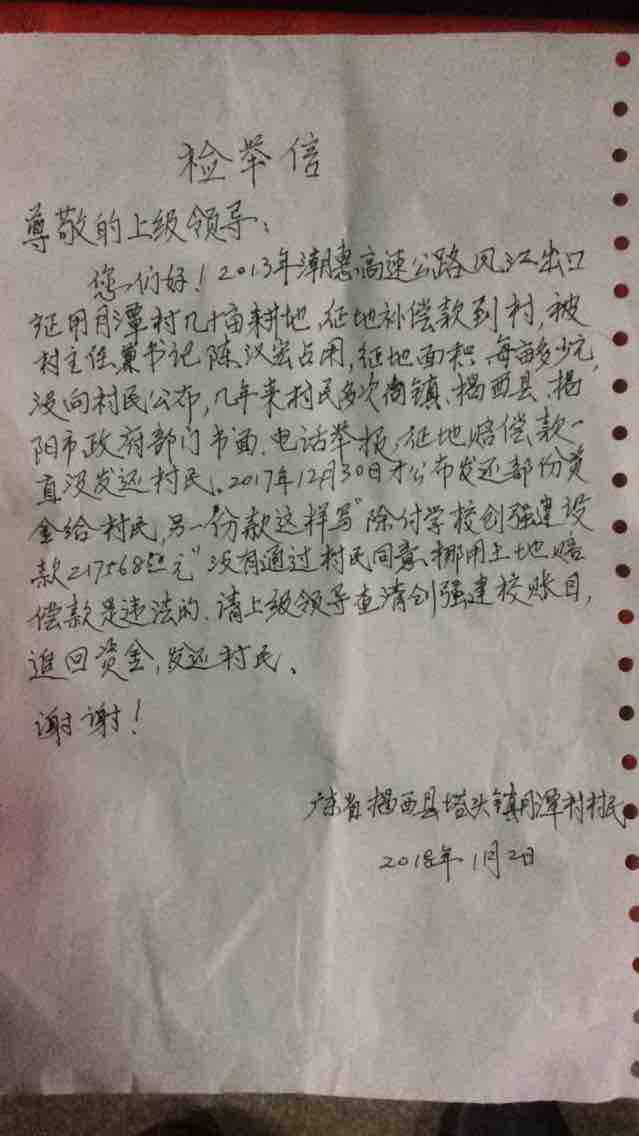 检举信
尊敬的上级领导：
您们好！2013年潮惠高速公路风江出口
征用月潭村几十亩耕地，征地补偿款到村，被
村主任兼书记陈汉宏占用，征地面积、每亩多少元，
没向村民公布，几年来村民多次向镇、揭西县、揭
阳市政府部门书面、电话举报，征地赔偿款一
直没发还村民、2017年12月30日才公布发还部份资
金给村民，另一份款这样写"除付学校创强建设
款217568 元"没有通过村民同意、挪用土地赔
偿款是违法的、请上级领导查清创强建校账目，
追回资金，发还村民、
谢谢！
广东省揭西县塔头镇月潭村村民
2018年1月2日